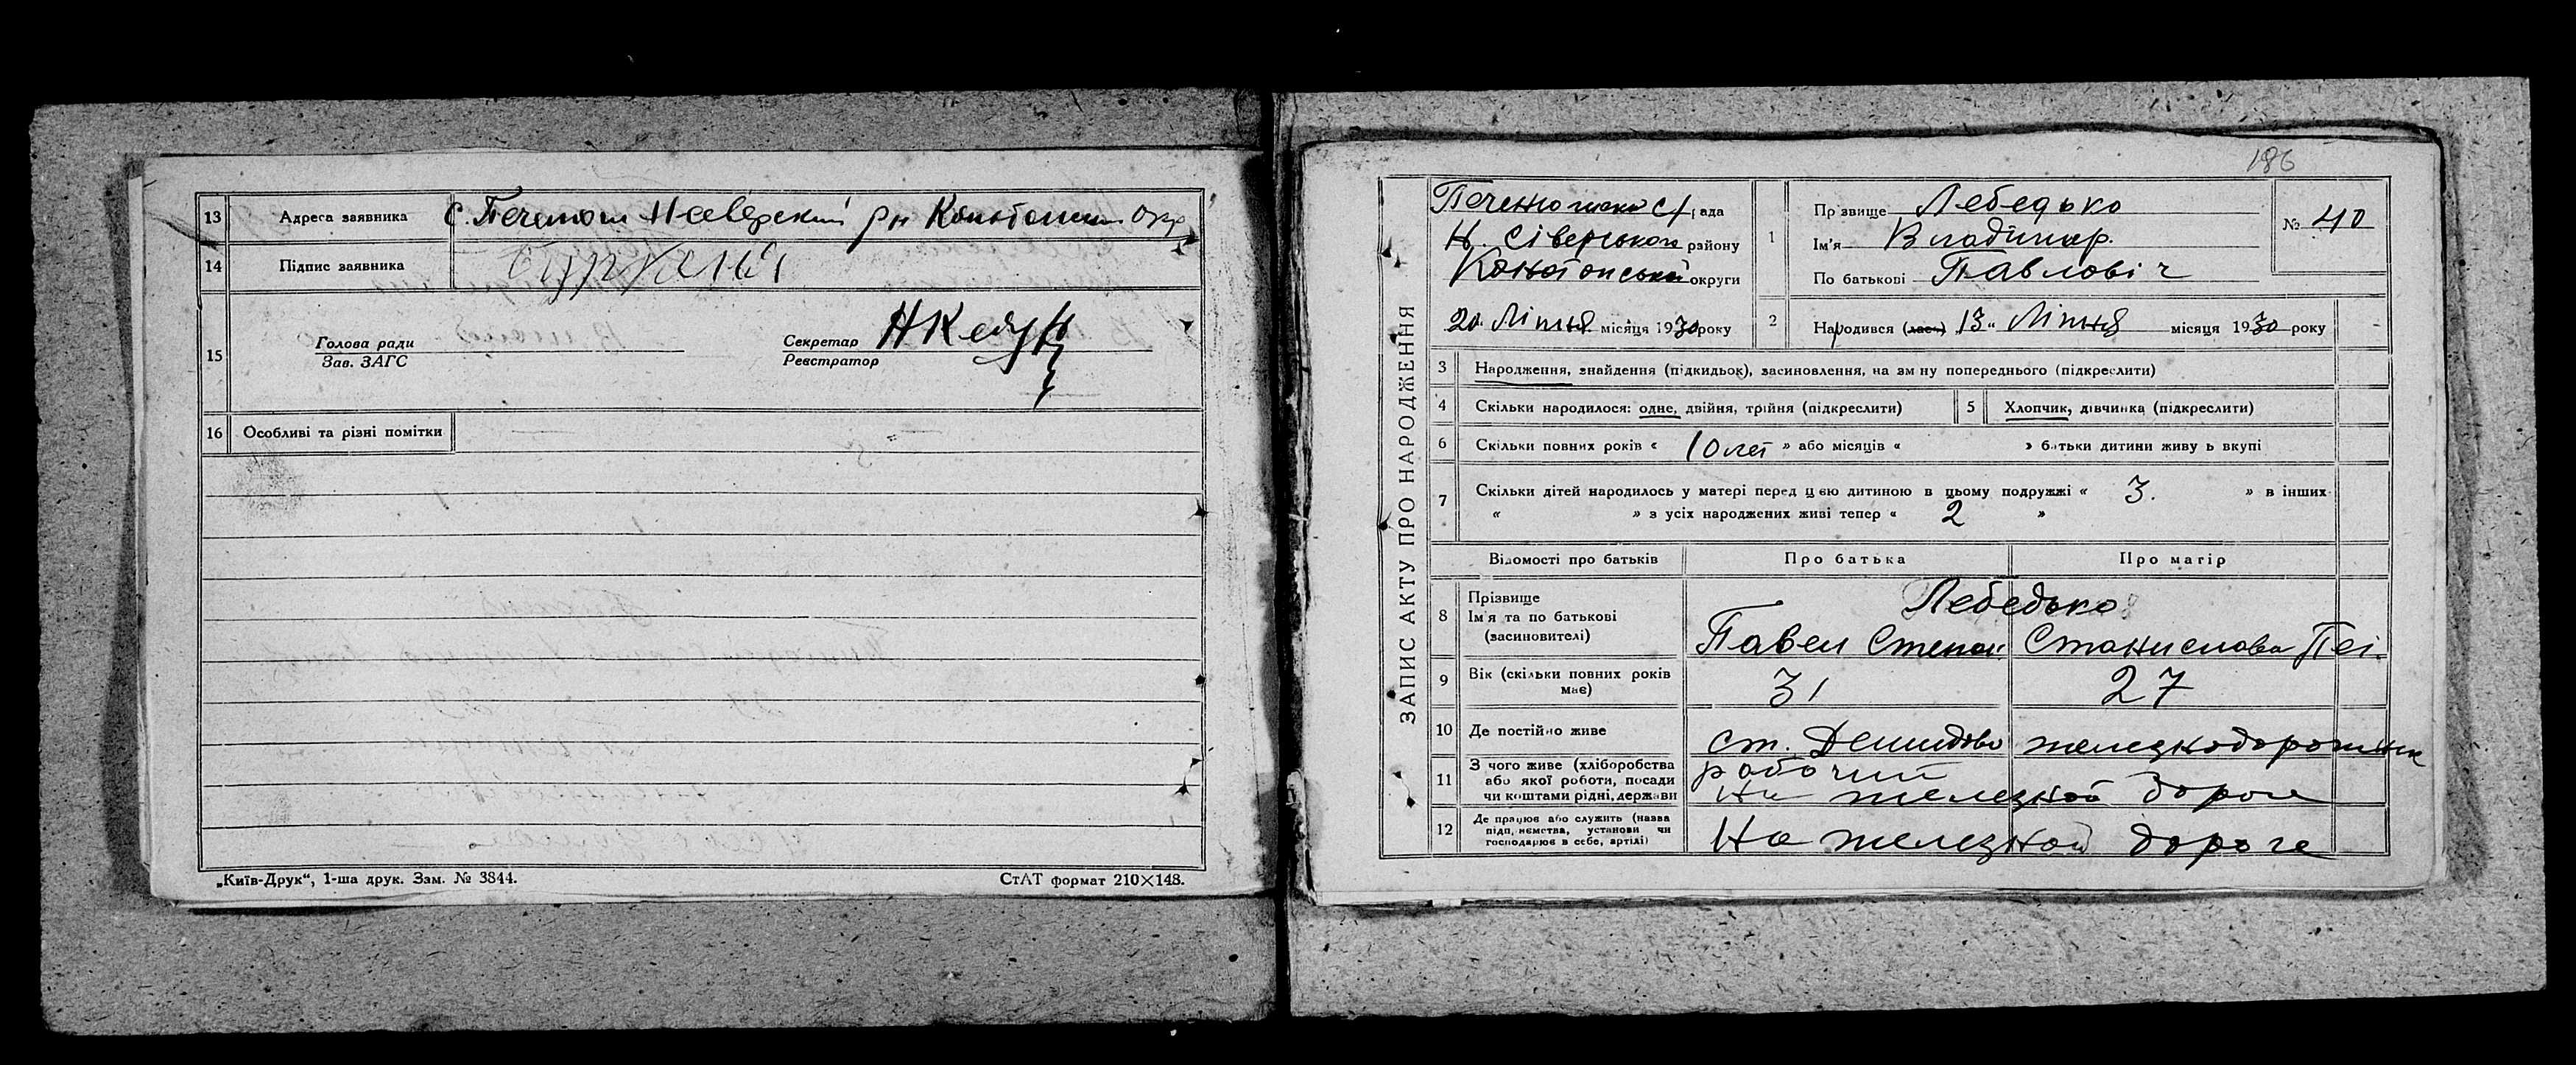 13 Адреса заявника С. Печенюги Н Северский рн Конотопск Окр
14 Підпис заявника
15 Голова ради
Зав. ЗАГС
Секретар
Реєстратор
16 Особливі та різні помітки
„Київ-Друк“, 1-ша друк. Зам. № 3844.
СтАТ формат 210×148.
186
ЗАПИС АКТУ ПРО НАРОДЖЕННЯ
С/рада
Н. Сіверськога району
Конотопської округи
20 Літня місяця 1930 року
1 Прізвище Лебедько
Ім'я Владимир.
По батькові Павловіч
№ 40
2 Народився (лась) 13 „ Літня місяця 1930 року
3 Народження, знайдення (підкидьок), засиновлення, на зміну попереднього (підкреслити)
4 Скільки народилося: одне, двійня, трійня (підкреслити)
5 Хлопчик, дівчинка (підкреслити)
6 Скільки повних років « 10 лет » або місяців « » батьки дитини живуть вкупі
7 Скільки дітей народилось у матері перед цією дитиною в цьому подружжі « 3. » в інших
« » з усіх народжених живі тепер « 2 »
Відомості про батьків Про батька Про матір
8 Прізвище
Ім'я та по батькові
(засиновителі)
Лебедько
Павел Степан. Станислава Пе
9 Вік (скільки повних років має) 31 27
10 Де постійно живе ст. Демидово
11 З чого живе (хліборобства
або якої роботи, посади
чи коштами рідні, держави
рабочий
на железной дороге
12 Де працює або служить (назва
підприємства, установи чи
господарює в себе, артілі)
На железной дороге